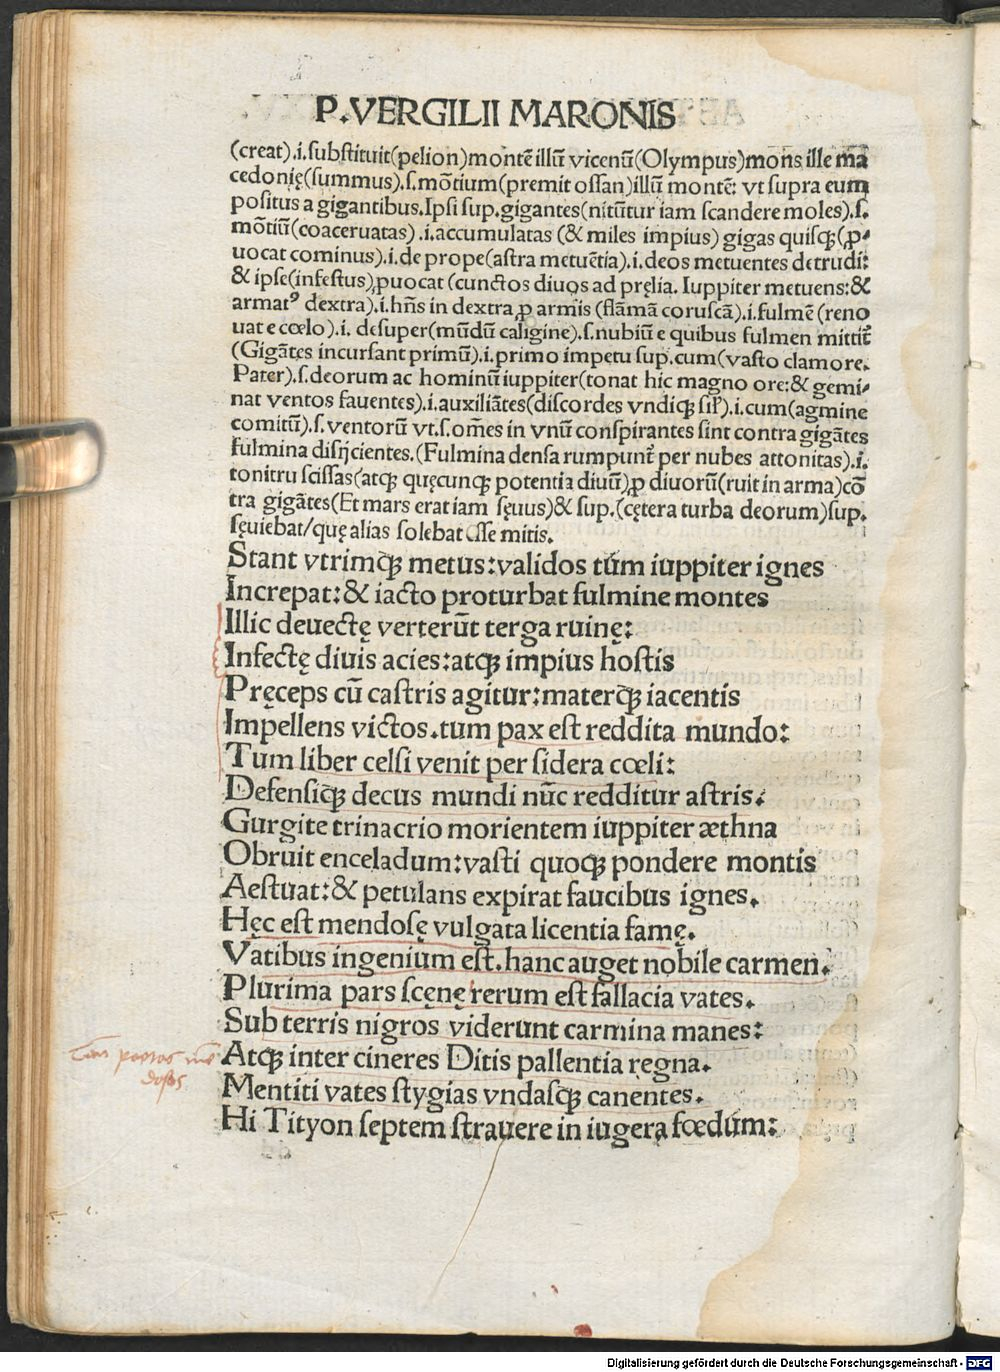 P.VERGILII MARONIS
(creat).i.substituit(pelion)montē illū vicenū(Olympus)mons ille ma
cedonię(summus).s.mōtium(premit ossan)illū montē: vt supra eum
positus a gigantibus.Ipsi sup.gigantes(nitūtur iam scandere moles).s.
mōtiū(coaceruatas).i.accumulatas (& miles impius) gigas quisqꝫ(ꝓ-
uocat cominus).i.de prope(astra metuētia).i.deos metuentes detrudi:
& ipse(infestus)ꝓuocat (cunctos diuos ad pręlia. Iuppiter metuens:&
armatꝰ dextra).i.hñs in dextra ꝓ armis (flāmā coruscā).i.fulmē(reno
uat e cœlo).i. desuper(mūdū caligine).s.nubiū e quibus fulmen mittit̄
(Gigātes incursant primū).i.primo impetu sup.cum(vasto clamore.
Pater).s.deorum ac hominū iuppiter(tonat hic magno ore:& gemi-
nat ventos fauentes).i.auxiliātes(discordes vndiqꝫ sil̄).i.cum(agmine
comitū).s.ventorū vt.s.om̄es in vnū conspirantes sint contra gigātes
fulmina disijcientes.(Fulmina densa rumpunt̄ per nubes attonitas).i.
tonitru scissas(atqꝫ quęcunqꝫ potentia diuū)ꝓ diuorū(ruit in arma)cō
tra gigātes(Et mars erat iam sęuus)& sup.(cętera turba deorum)sup.
sęuiebat/quę alias solebat esse mitis.
Stant vtrimqꝫ metus:validos tum iuppiter ignes
Increpat:& iacto proturbat fulmine montes
Illic deuectę verterūt terga ruinę:
Infectę diuis acies:atqꝫ impius hostis
Pręceps cū castris agitur:materqꝫ iacentis
Impellens victos.tum pax est reddita mundo:
Tum liber celsi venit per sidera cœli:
Defensiqꝫ decus mundi nūc redditur astris.
Gurgite trinacrio morientem iuppiter æthna
Obruit enceladum:vasti quoqꝫ pondere montis
Aestuat:& petulans expirat faucibus ignes.
Hęc est mendosę vulgata licentia famę.
Vatibus ingenium est.hanc auget nobile carmen.
Plurima pars scęnę rerum est fallacia vates.
Sub terris nigros viderunt carmina manes:
Atqꝫ inter cineres Ditis pallentia regna.
Mentiti vates stygias vndasqꝫ canentes.
Hi Tityon septem strauere in iugera fœdum:
poetas mē
dosos
Digitalisierung gefördert durch die Deutsche Forschungsgemeinschaft - DFG